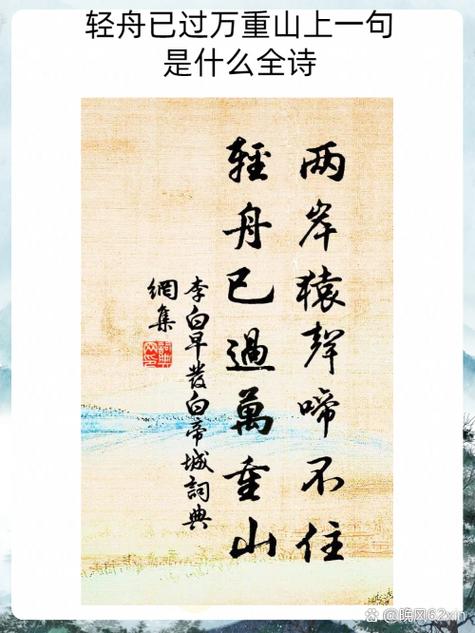 轻舟已过万重山上一句
是什么全诗
两岸猿聲啼不住
輕舟已過萬重山
李白早發白帝城詞典
網集